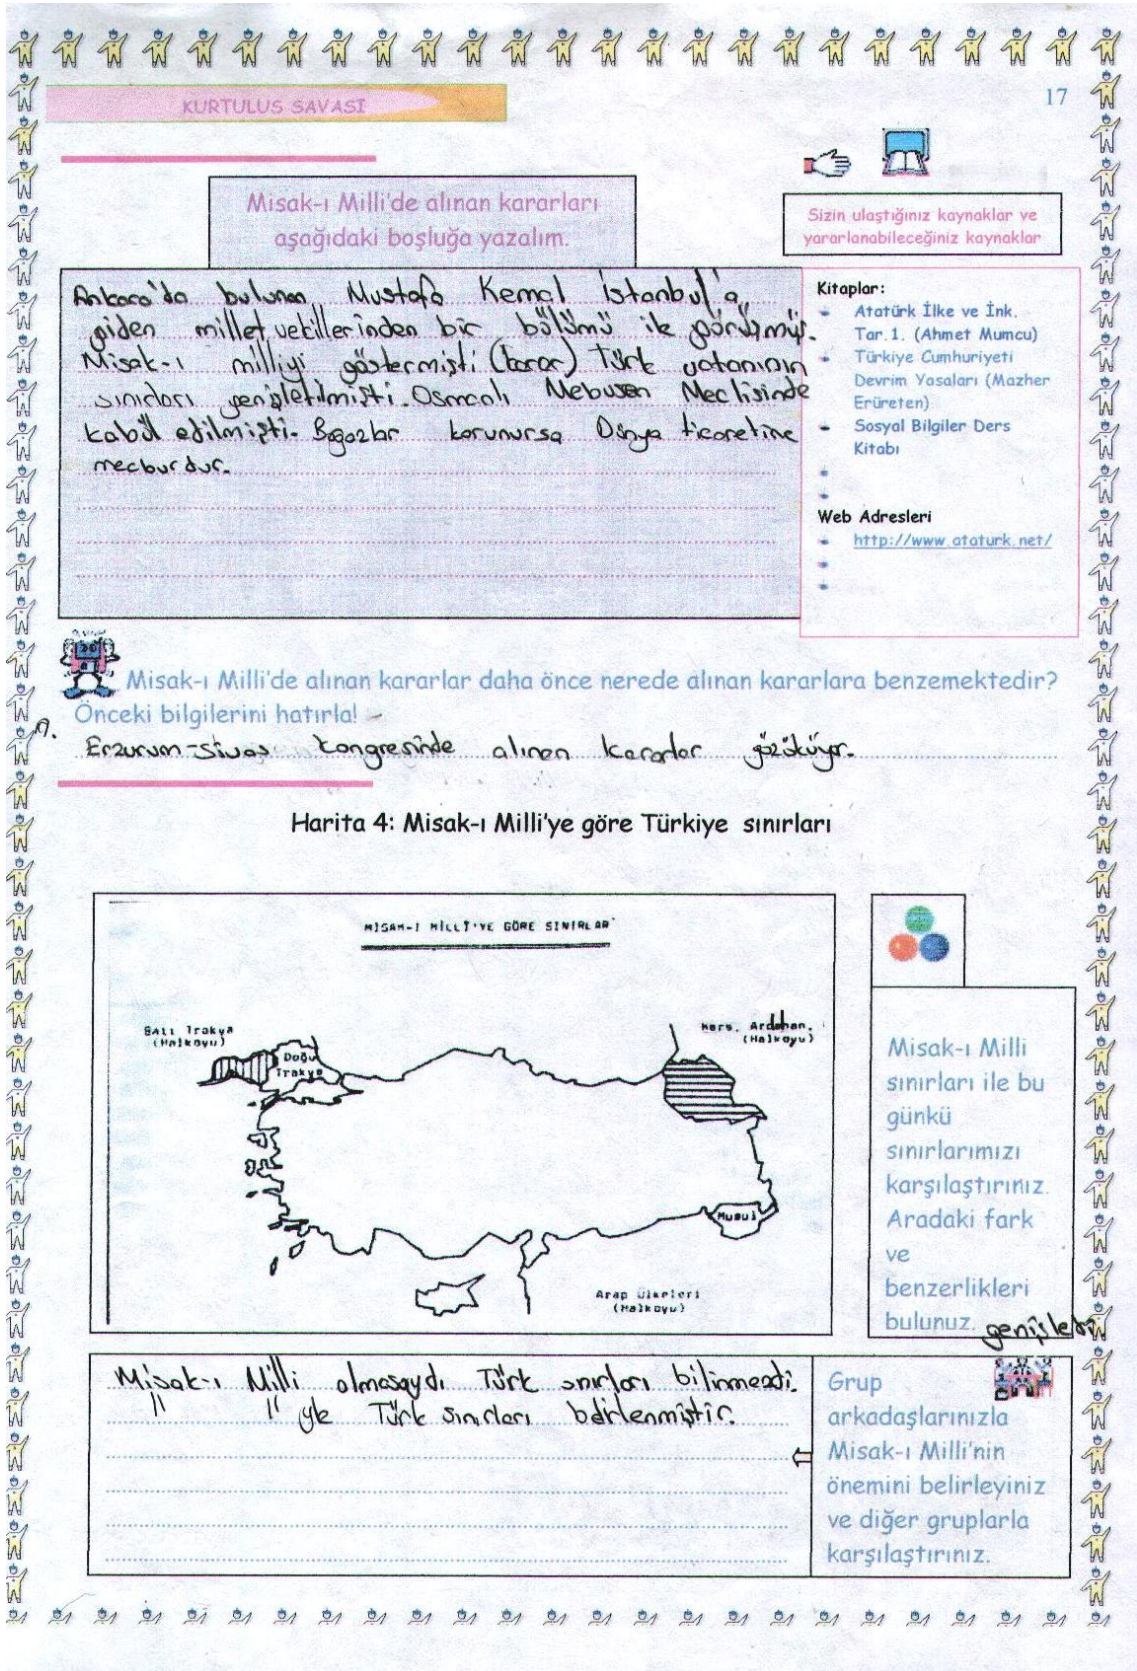 KURTULUS SAVASI
17
Misak-ı Milli'de alınan kararları
aşağıdaki boşluğa yazalım.
Sizin ulaştığınız kaynaklar ve
yararlanabileceğiniz kaynaklar
Ankara'da bulunan Mustafa Kemal İstanbul'a
giden milletvekillerinden bir bölümü ile görüşmüş.
Misak-ı milliyi göstermişti (karar) Türk vatanının
sınırları genişletilmişti. Osmanlı Mebusan Meclisinde
kabül edilmişti. Bogazlar korunursa Dünya ticaretine
mecburdur.
Kitaplar:
Atatürk İlke ve İnk.
Tar.1. (Ahmet Mumcu)
Türkiye Cumhuriyeti
Devrim Yasaları (Mazher
Erüreten)
Sosyal Bilgiler Ders
Kitabı
Web Adresleri
http://www.ataturk.net/
Misak-ı Milli'de alınan kararlar daha önce nerede alınan kararlara benzemektedir?
Önceki bilgilerini hatırla!
Erzurum-Sivas kongresinde alınan kararlar gözüküyor.
Harita 4: Misak-ı Milli'ye göre Türkiye sınırları
MİSAK-I MİLLİ'YE GÖRE SINIRLAR
Batı Trakya
(Halkoyu)
Doğu
Trakya
Kars, Ardahan,
(Halkoyu)
Musul
Arap Ülkeleri
(Halkoyu)
Misak-ı Milli
sınırları ile bu
günkü
sınırlarımızı
karşılaştırınız.
Aradaki fark
ve
benzerlikleri
bulunuz.
Misak-ı Milli olmasaydı Türk sınırları bilinmezdi.
" " yle Türk sınırları belirlenmiştir.
Grup
arkadaşlarınızla
Misak-ı Milli'nin
önemini belirleyiniz
ve diğer gruplarla
karşılaştırınız.